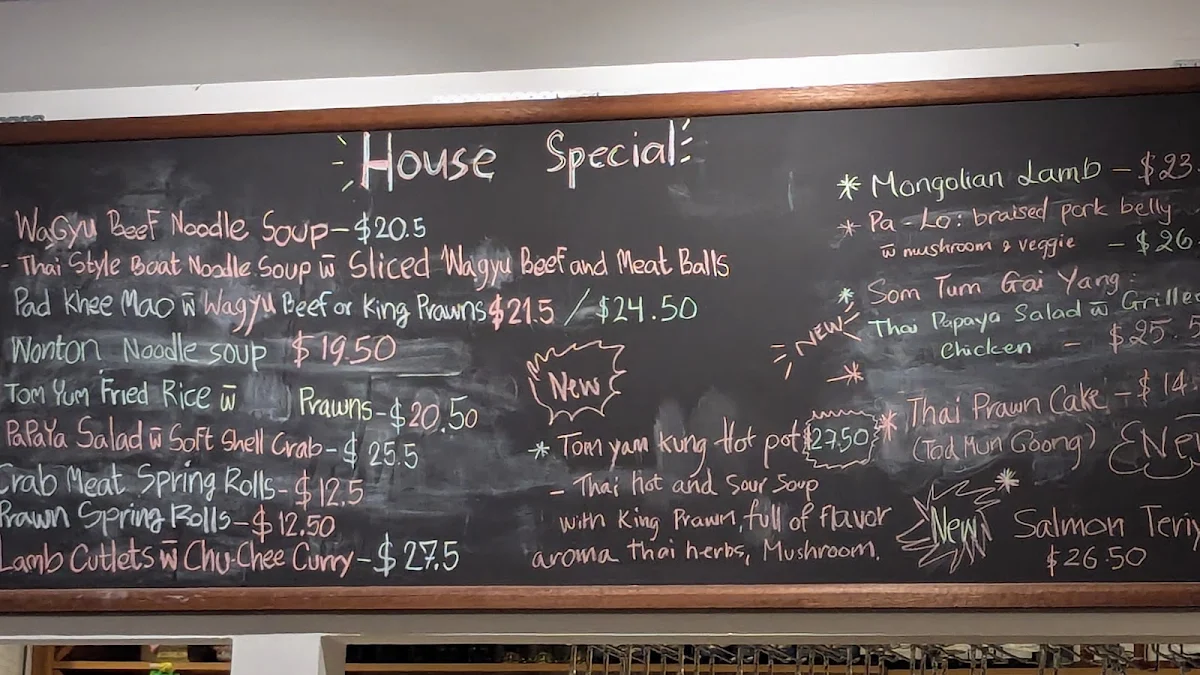 House Special
WaGyu Beef Noodle Soup - $20.5
- Thai Style Boat Noodle Soup w̄ Sliced Wagyu Beef and Meat Balls
Pad Khee Mao w̄ Wagyu Beef or King Prawns $21.5 / $24.50
Wonton Noodle soup $19.50
Tom Yum Fried Rice w̄ Prawns - $20.50
PaPaYa Salad w̄ Soft Shell Crab - $25.5
Crab Meat Spring Rolls - $12.5
Prawn Spring Rolls - $12.50
Lamb Cutlets w̄ Chu-Chee Curry - $27.5
New
* Tom yam kung Hot pot $27.50
- Thai Hot and Sour Soup
with King Prawn, full of flavor
aroma thai herbs, Mushroom.
* Mongolian Lamb - $23.
* Pa-Lo: braised pork belly
w̄ mushroom & veggie - $26
* Som Tum Gai Yang:
NEW
Thai Papaya Salad w̄ Grille
Chicken - $25.5
* Thai Prawn Cake - $14
(Tod Mun Goong) New
New
* Salmon Teriy
$26.50